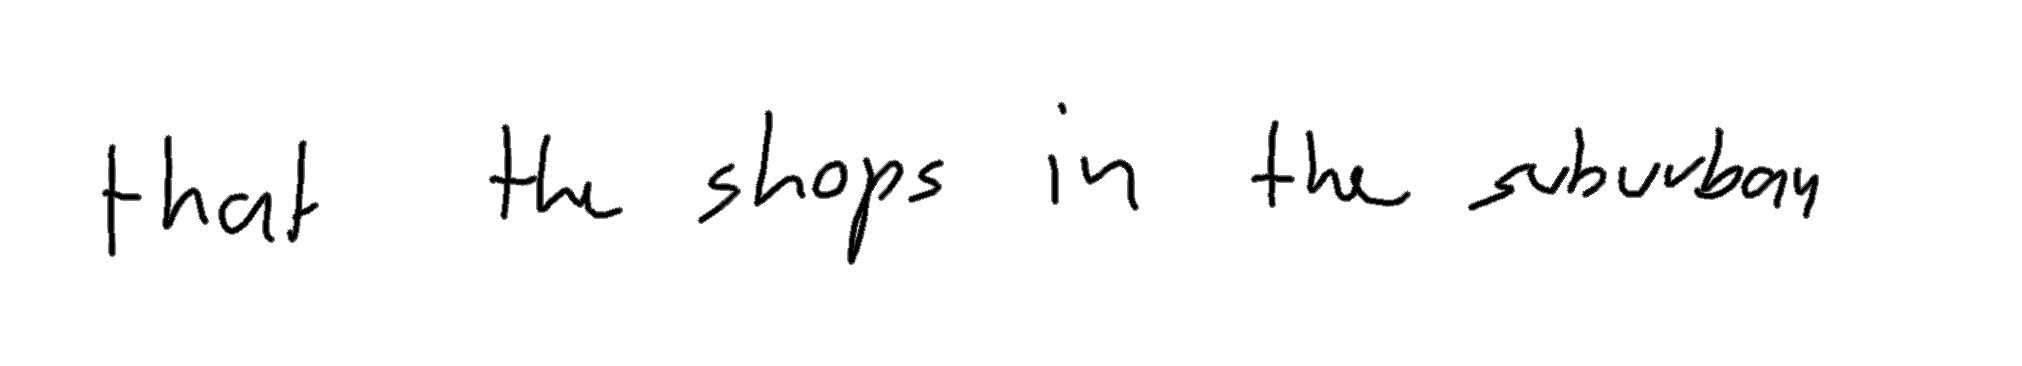 that the shops in the suburban